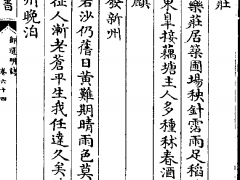 莊
樂莊居築圃場秧針霑雨足稻
東皐接藕塘主人多種林春酒
發新州
若沙仍舊日黄難期晴雨色莫
征人漸老蒼平生我任達久矣
州晚泊
御選明詩
卷六十四